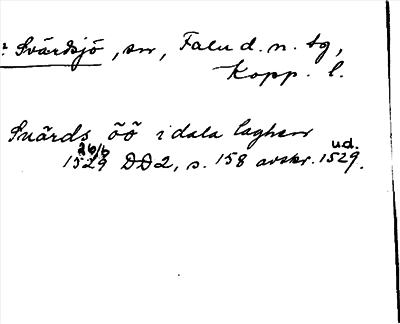 : Svärdsjö, sn, Falu d. n. tg,
Kopp. l.
Suärds öö i dala laghen
26/6 ud.
1529 DD2, s. 158 avskr. 1529.